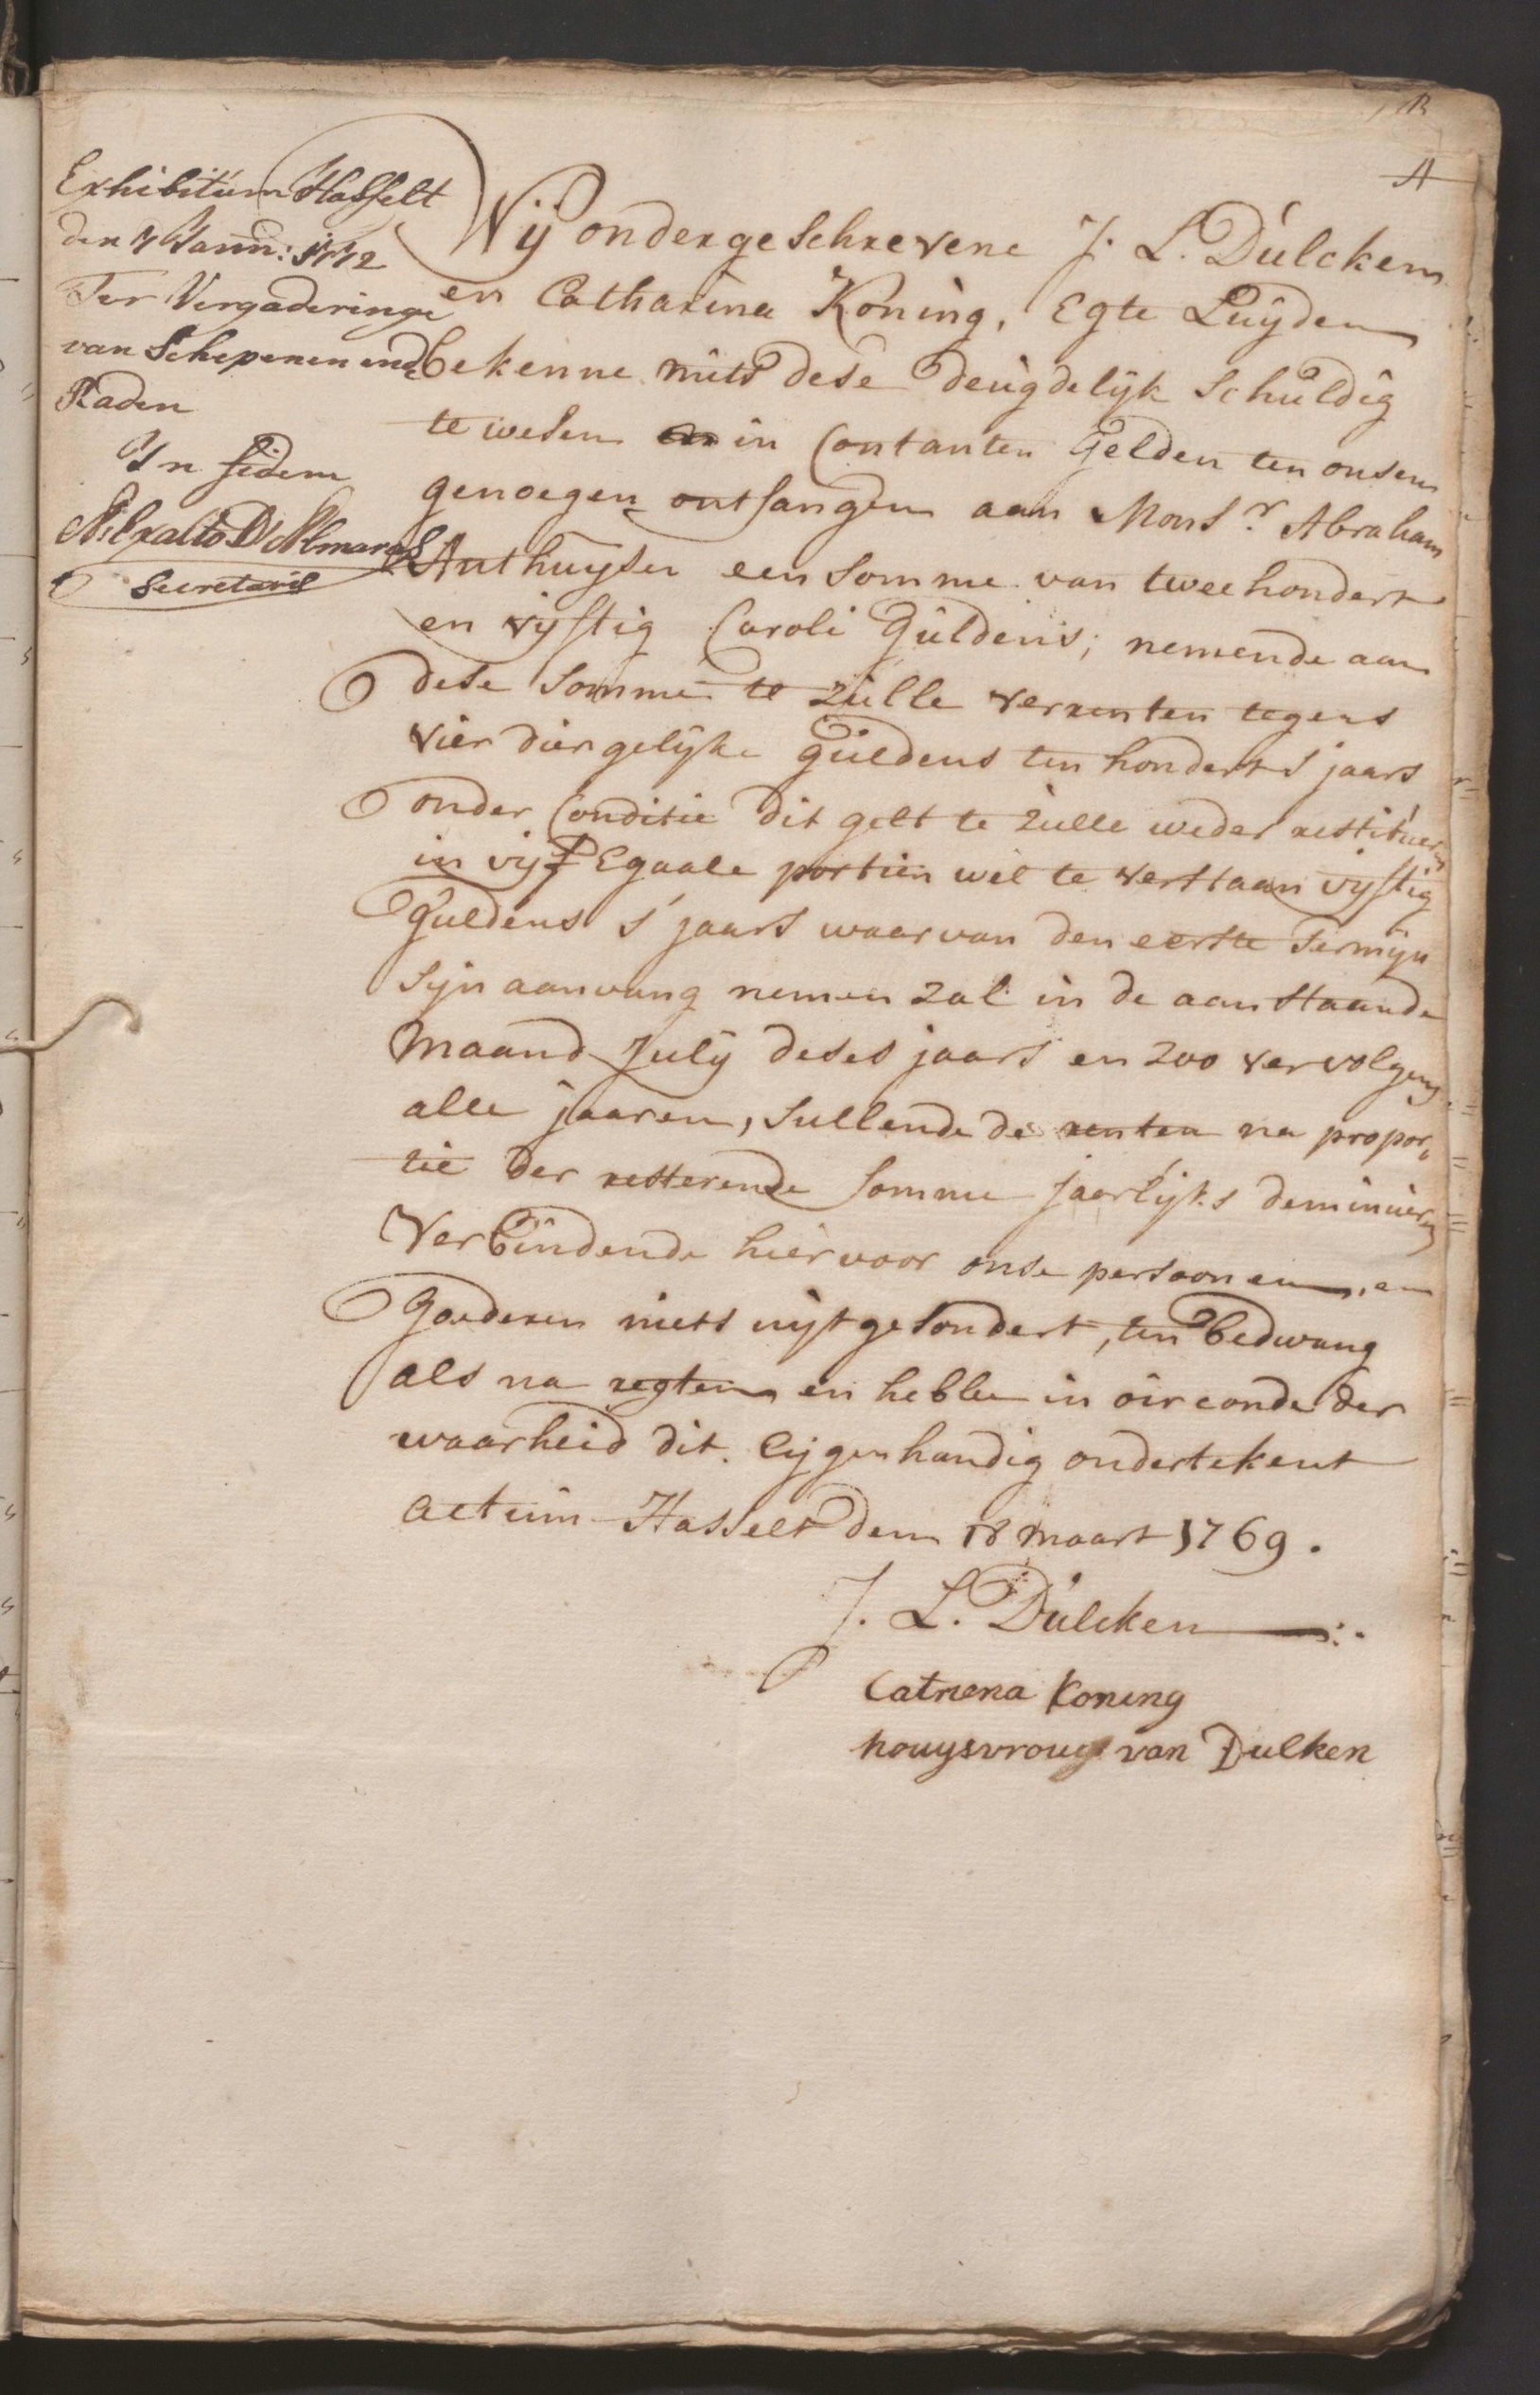 A
Exhibitum Hasselt
den 7 Jann: 1772
Ter Vergaderinge
van Schepenen ende
Raden
In fidem
Exalto D'Almaras
Secretaris
Wij ondergeschrevene J. L. Dulcken
en Catharina Koning, Egte Luijden
bekenne mits dese deugdelijk schuldig
te wesen in Contanten gelden ten onsen
genoegen ontfangen aan Monsr. Abraham
Anthuyser een somme van twee hondert
en vijftig Caroli guldens; nemende aan
dese somme te zulle verrenten tegens
vier diergelijke guldens ten hondert s jaars
onder Conditie dit gelt te zulle weder restitueren
in vijf Egaale portien wel te verstaan vijftig
guldens s' jaars waar van den eerste termijn
sijn aanvang nemen zal in de aanstaande
maand Julij deses jaars en zoo vervolgens
alle jaaren, sullende de renten na propor„
tie der resterende somme jaarlijks deminueren
Verbindende hier voor onse persoonen, en
goederen niets uijtgesondert, ten bedwang
als na regten en hebbe in oirconde der
waarheid dit Eijgenhandig ondertekent
actum Hasselt den 18 maart 1769.
J. L. Dulcken
Catriena Koning
houysvrouw van Dulken